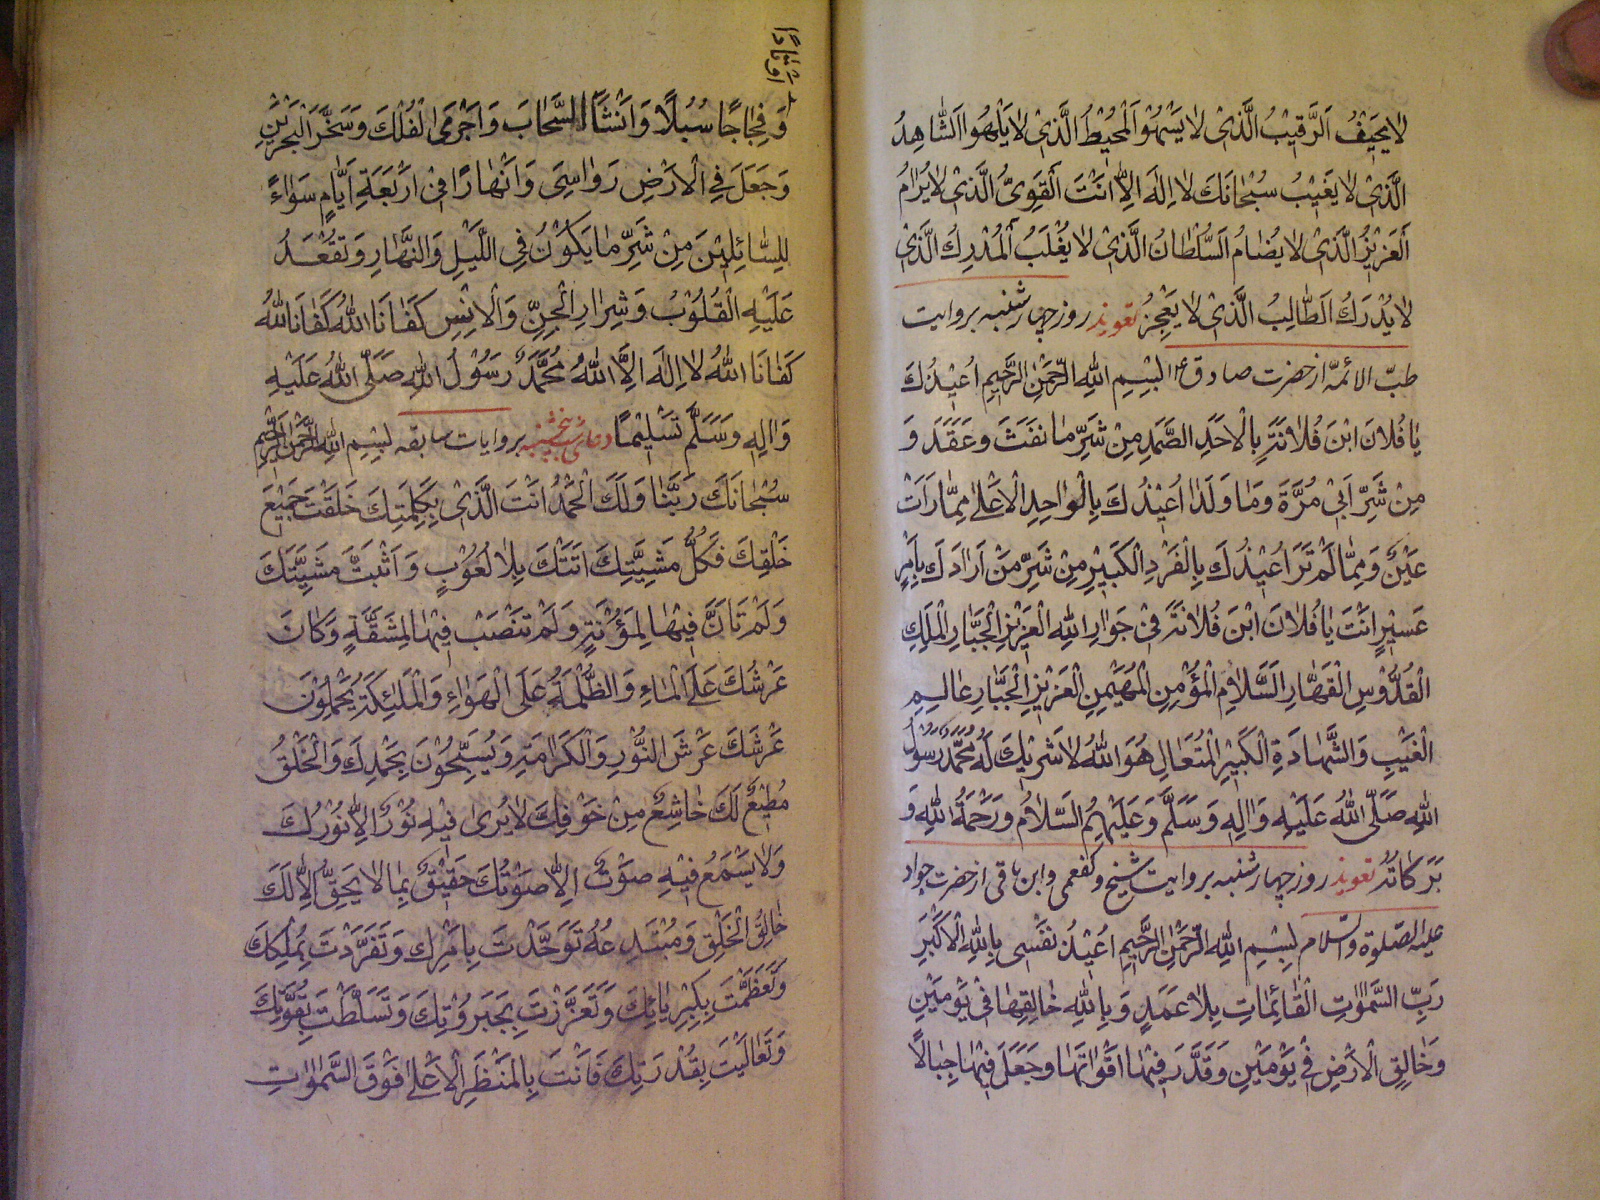 لا يحيف الرقيب الذى لا يسهو المحيط الذى لا يلهو الشاهد
الذى لا يغيب سبحانك لا اله الا انت القوى الذى لا يرام
العزيز الذى لا يضام السلطان الذى لا يغلب المدرك الذى
لا يدرك الطالب الذى لا يعجز تعويذ روز چهارشنبه بروايت
طب الائمه از حضرت صادق ع بسم الله الرحمن الرحيم اعيذك
يا فلان ابن فلانة بالاحد الصمد من شر ما نفث وعقد و
من شر ابى مرة وما ولد اعيذك بالواحد الاعلى مما رات
عين ومما لم تر اعيذك بالفرد الكبير من شر من ارادك بامر
عسير انت يا فلان ابن فلانة فى جوار الله العزيز الجبار الملك
القدوس القهار السلام المؤمن المهيمن العزيز الجبار عالم
الغيب والشهادة الكبير المتعال هو الله لا شريك له محمد رسول
الله صلى الله عليه واله وسلم وعليهم السلام ورحمة الله و
بركاته تعويذ روز چهارشنبه بروايت شيخ وكفعمى وابن باقى از حضرت جواد
عليه الصلوة والسلام بسم الله الرحمن الرحيم اعيذ نفسى بالله الاكبر
رب السموات القائمات بلا عمد وبالله خالقها فى يومين
وخالق الارض فى يومين وقدر فيها اقواتها وجعل فيها جبالا
اوتادا
وفجاجا سبلا وانشا السحاب واجرى الفلك وسخر البحرين
وجعل فى الارض رواسى وانهارا فى اربعة ايام سواء
للسائلين من شر ما يكون فى الليل والنهار وتعقد
عليه القلوب وشرار الجن والانس كفانا الله كفانا الله
كفانا الله لا اله الا الله محمد رسول الله صلى الله عليه
واله وسلم تسليما دعاى شب پنجشنبه بروايات سابقه بسم الله الرحمن الرحيم
سبحانك ربنا ولك الحمد انت الذى بكلمتك خلقت جميع
خلقك فكل مشيتك اتتك بلا لغوب واثبت مشيتك
ولم تان فيها لمؤنة ولم تنصب فيها لمشقة وكان
عرشك على الماء والظلمة على الهواء والملئكة يحملون
عرشك عرش النور والكرامة ويسبحون بحمدك والخلق
مطيع لك خاشع من خوفك لا يرى فيه نور الا نورك
ولا يسمع فيه صوت الا صوتك حقيق بما لا يحق الا لك
خالق الخلق ومبتدعه توحدت بامرك وتفردت بملكك
وتعظمت بكبريائك وتعززت بجبروتك وتسلطت بقوتك
وتعاليت بقدرتك فانت بالمنظر الاعلى فوق السموات